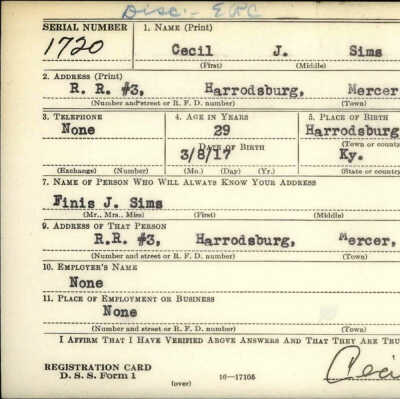 Disc:- EGC
SERIAL NUMBER
1. NAME (Print)
1720
Cecil J. Sims
(First) (Middle)
2. ADDRESS (Print)
R. R. #3, Harrodsburg, Mercer
(Number and street or R. F. D. number) (Town)
3. TELEPHONE
4. AGE IN YEARS
5. PLACE OF BIRTH
None
29
Harrodsburg
DATE OF BIRTH
(Town or county
3/8/17
Ky.
(Exchange) (Number)
(Mo.) (Day) (Yr.)
(State or country
7. NAME OF PERSON WHO WILL ALWAYS KNOW YOUR ADDRESS
Finis J. Sims
(Mr., Mrs., Miss) (First) (Middle)
9. ADDRESS OF THAT PERSON
R.R. #3, Harrodsburg, Mercer,
(Number and street or R. F. D. number) (Town)
10. EMPLOYER'S NAME
None
11. PLACE OF EMPLOYMENT OR BUSINESS
None
(Number and street or R. F. D. number) (Town)
I AFFIRM THAT I HAVE VERIFIED ABOVE ANSWERS AND THAT THEY ARE TRU
REGISTRATION CARD
D. S. S. Form 1
16-17105
(over)
Ceci